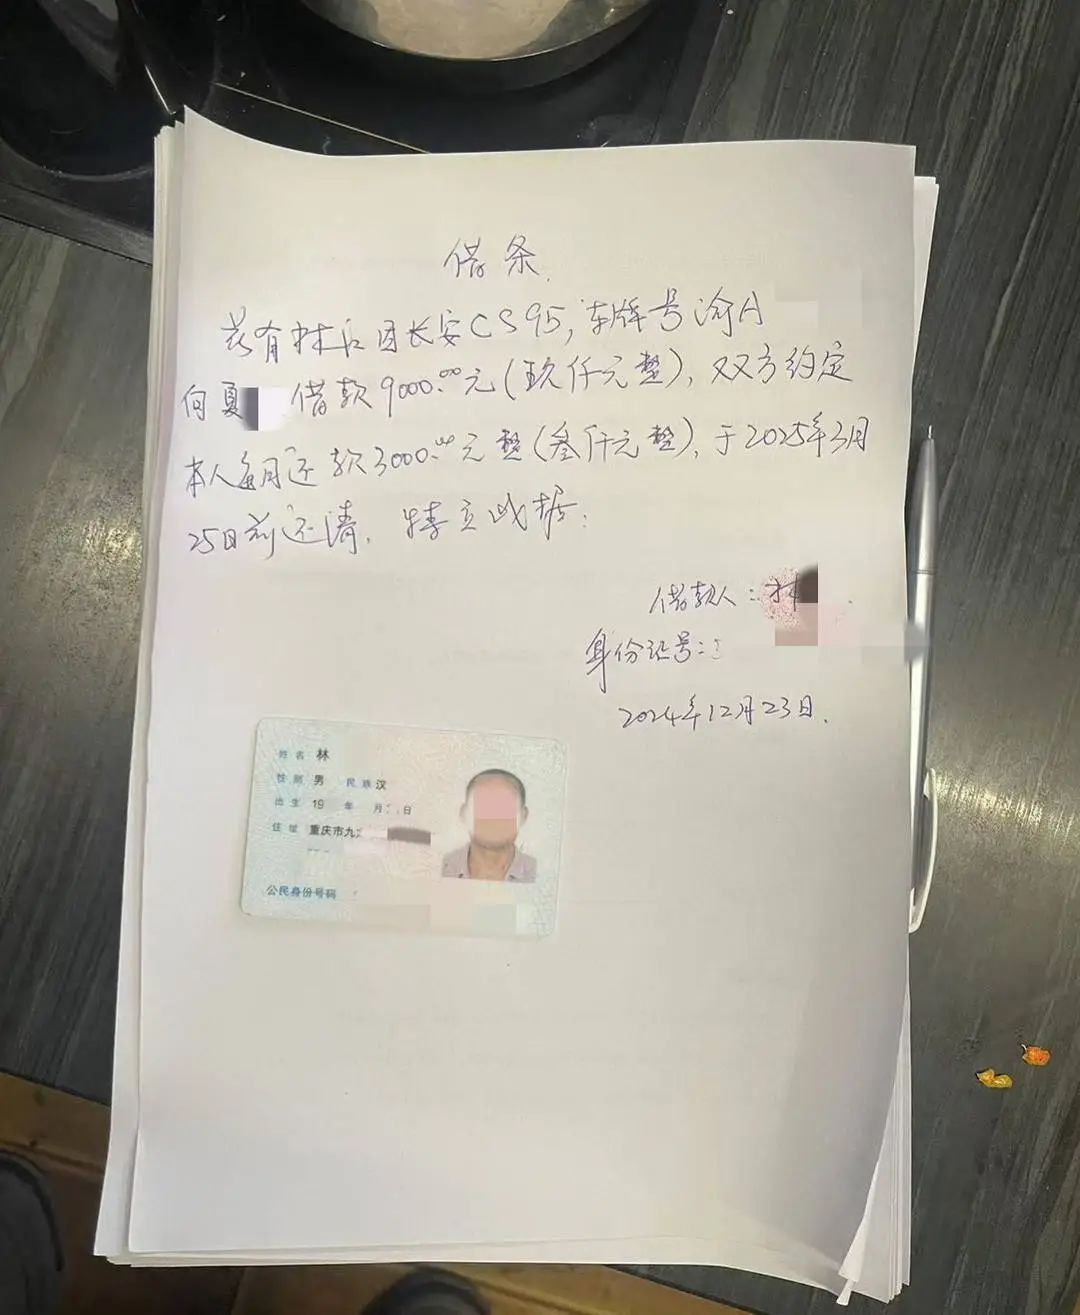 借条.
兹有林 因长安CS95,车牌号渝A
向夏 借款9000.00元(玖仟元整),双方约定
本人每月还款3000.00元整(叁仟元整),于2025年3月
25日前还清,特立此据.
借款人:林
身份证号:
2024年12月23日.
姓名 林
性别 男 民族 汉
出生 19 年 月 日
住址 重庆市九
公民身份号码